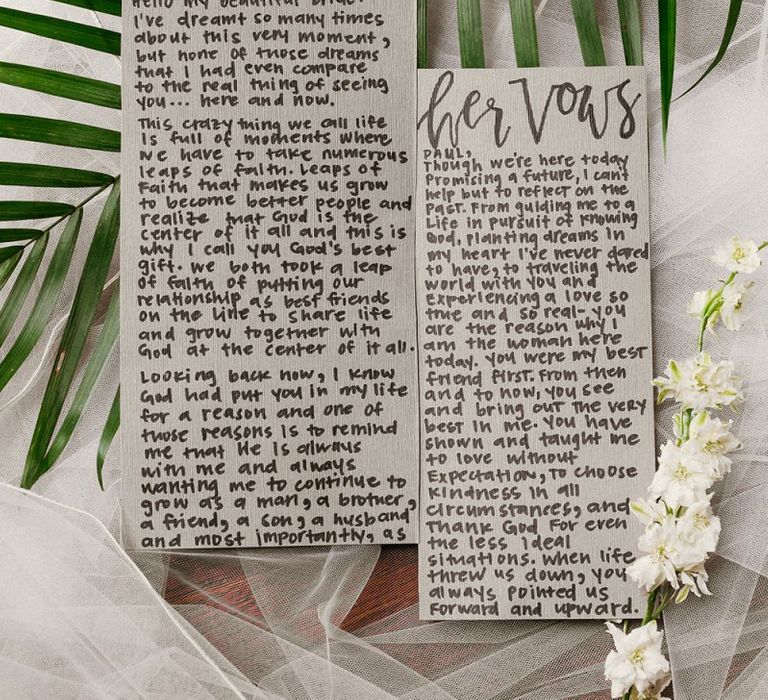 Hello my beautiful bride!
I've dreamt so many times
about this very moment,
but none of those dreams
that I had even compare
to the real thing of seeing
you... here and now.
This crazy thing we all life
is full of moments where
we have to take numerous
leaps of faith. Leaps of
faith that makes us grow
to become better people and
realize that God is the
center of it all and this is
why I call you God's best
gift. We both took a leap
of faith of putting our
relationship as best friends
on the line to share life
and grow together with
God at the center of it all.
Looking back now, I know
God had put you in my life
for a reason and one of
those reasons is to remind
me that He is always
with me and always
wanting me to continue to
grow as a man, a brother,
a friend, a son, a husband
and most importantly, as
her vows
PAUL,
Though we're here today
promising a future, I can't
help but to reflect on the
past. From guiding me to a
life in pursuit of knowing
God, planting dreams in
my heart I've never dared
to have, to traveling the
world with you and
experiencing a love so
true and so real- you
are the reason why I
am the woman here
today. You were my best
friend first. From then
and to now, you see
and bring out the very
best in me. You have
shown and taught me
to love without
expectation, to choose
kindness in all
circumstances, and
thank God for even
the less ideal
situations. When life
threw us down, you
always pointed us
forward and upward.